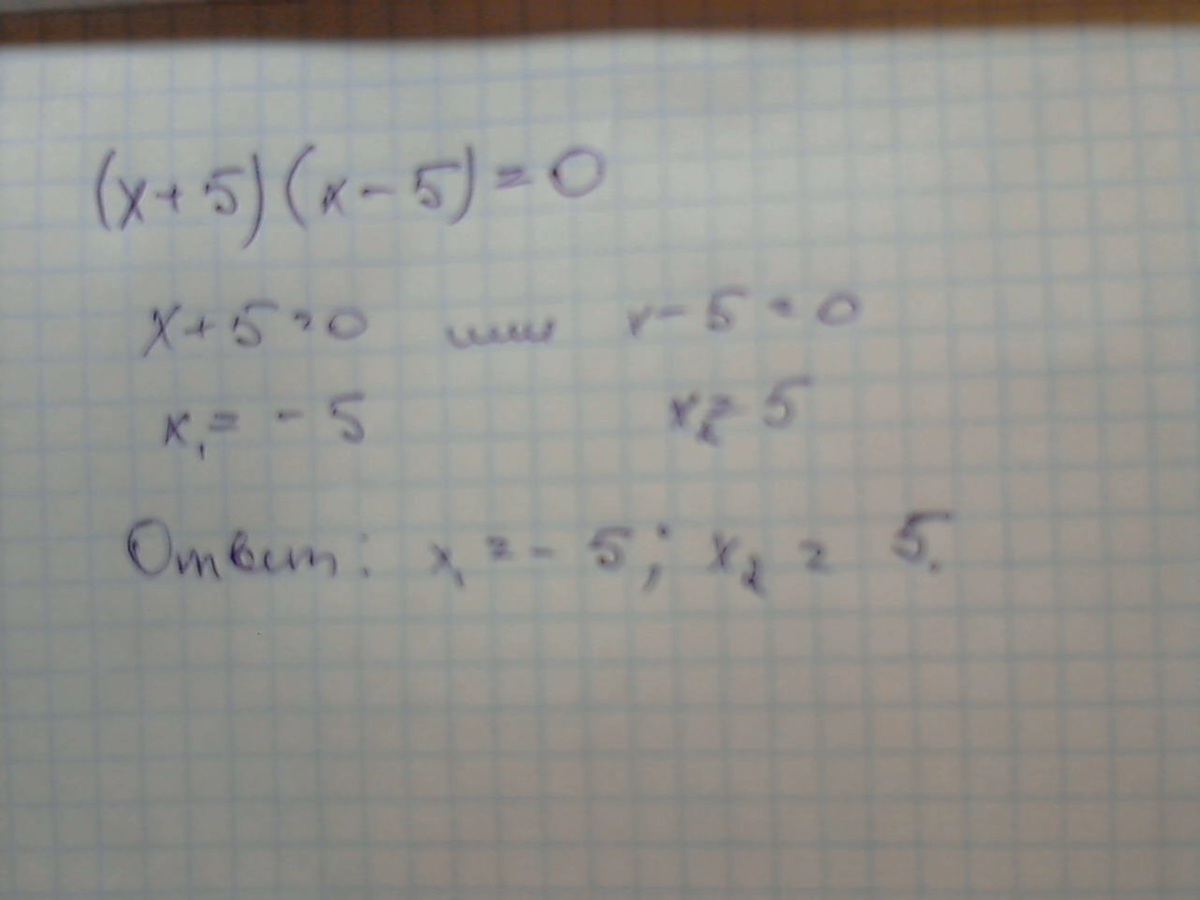 (x+5)(x-5)=0
x+5=0 или x-5=0
x₁=-5 x₂=5
Ответ: x₁=-5; x₂=5.